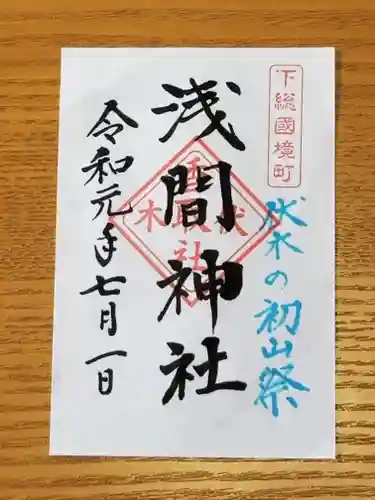 下総國境町
伏木の初山祭
浅間神社
伏木
香取社
令和元年七月一日